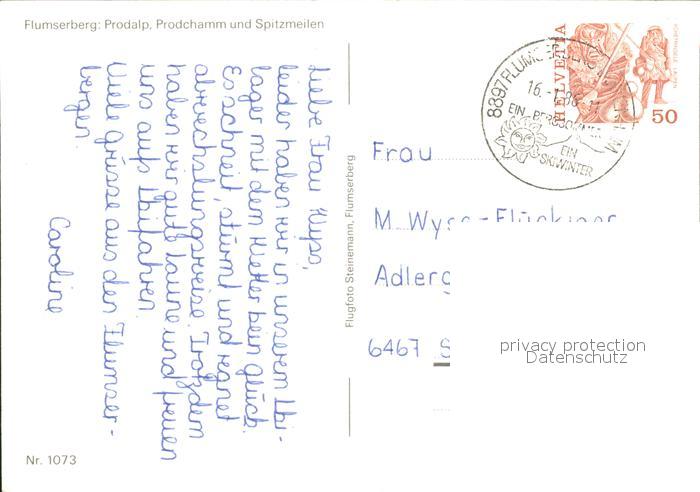 Flumserberg: Prodalp, Prodchamm und Spitzmeilen
Liebe Frau Wyss,
leider haben wir in unserem Ski-
lager mit dem Wetter kein Glück.
Es schneit, stürmt und regnet
abwechslungsweise. Trotzdem
haben wir gute Laune und freuen
uns aufs Skifahren.
Viele Grüsse aus den Flumser-
bergen.
Caroline
Nr. 1073
Flugfoto Steinemann, Flumserberg
8897 FLUMSERBERG
16.-1.86
EIN BERGSOMMER
EIN
SKIWINTER
HELVETIA
50
Frau
M. Wyss-Flückiger
Adlerg
6467 S
privacy protection
Datenschutz